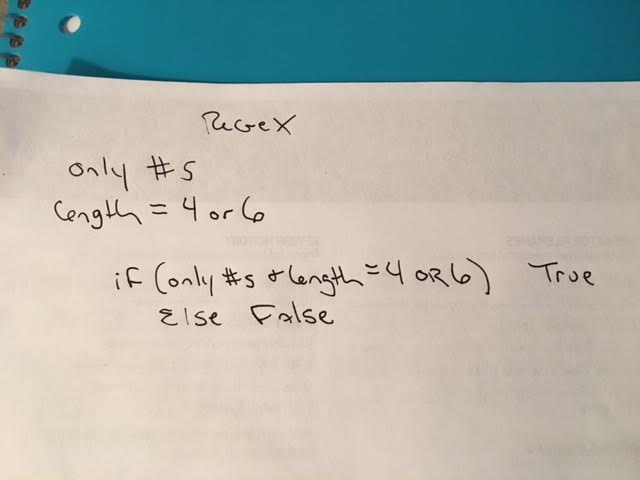 RegeX
only #s
length = 4 or 6
if (only #s & length = 4 OR 6) True
Else False